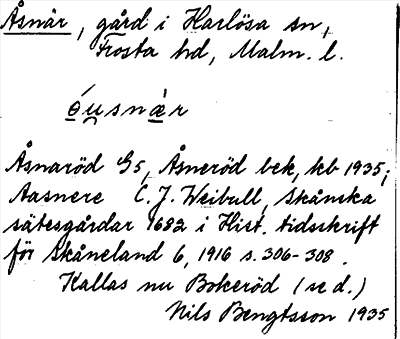 Åsnär, gård i Harlösa sn,
Frosta hd, Malm. l.
ǿu̯snæ̀r
Åsnaröd G5, Åsneröd bek, kb 1935;
Aasnere C. J. Weibull, Skånska
sätesgårdar 1682 i Hist. tidsskrift
för Skåneland 6, 1916 s. 306-308.
Kallas nu Bokeröd (se d.)
Nils Bengtsson 1935